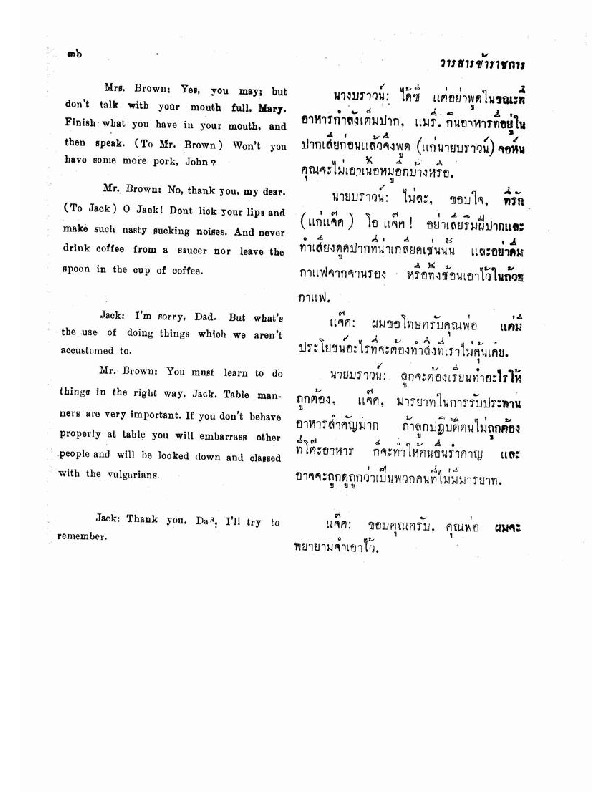 ๓๖
วารสารข้าราชการ
Mrs. Brown: Yes, you may; but
don't talk with your mouth full, Mary.
Finish what you have in your mouth, and
then speak. (To Mr. Brown) Won't you
have some more pork, John?
Mr. Brown: No, thank you, my dear.
(To Jack) O Jack! Dont lick your lips and
make such nasty sucking noises. And never
drink coffee from a saucer nor leave the
spoon in the cup of coffee.
Jack: I'm sorry, Dad. But what's
the use of doing things which we aren't
accustomed to.
Mr. Brown: You must learn to do
things in the right way, Jack. Table man-
ners are very important. If you don't behave
properly at table you will embarrass other
people and will be looked down and classed
with the vulgarians.
Jack: Thank you, Dad, I'll try to
remember.
นางบราวน์: ได้ซี แต่อย่าพูดในขณะที่
อาหารกำลังเต็มปาก, แมรี่. กินอาหารที่อยู่ใน
ปากเสียก่อนแล้วจึงพูด (แก่นายบราวน์) จอห์น
คุณจะไม่เอาเนื้อหมูอีกบ้างหรือ.
นายบราวน์: ไม่ละ, ขอบใจ, ที่รัก
(แก่แจ๊ค) โอ แจ๊ค! อย่าเลียริมฝีปากและ
ทำเสียงดูดปากที่น่าเกลียดเช่นนั้น และอย่าดื่ม
กาแฟจากจานรอง หรือทิ้งช้อนเอาไว้ในถ้วย
กาแฟ.
แจ๊ค: ผมขอโทษครับคุณพ่อ แต่มี
ประโยชน์อะไรที่จะต้องทำสิ่งที่เราไม่คุ้นเคย.
นายบราวน์: ลูกจะต้องเรียนทำอะไรให้
ถูกต้อง, แจ๊ค, มารยาทในการรับประทาน
อาหารสำคัญมาก ถ้าลูกปฏิบัติตนไม่ถูกต้อง
ที่โต๊ะอาหาร ก็จะทำให้คนอื่นรำคาญ และ
อาจจะถูกดูถูกว่าเป็นพวกคนที่ไม่มีมารยาท.
แจ๊ค: ขอบคุณครับ, คุณพ่อ ผมจะ
พยายามจำเอาไว้.